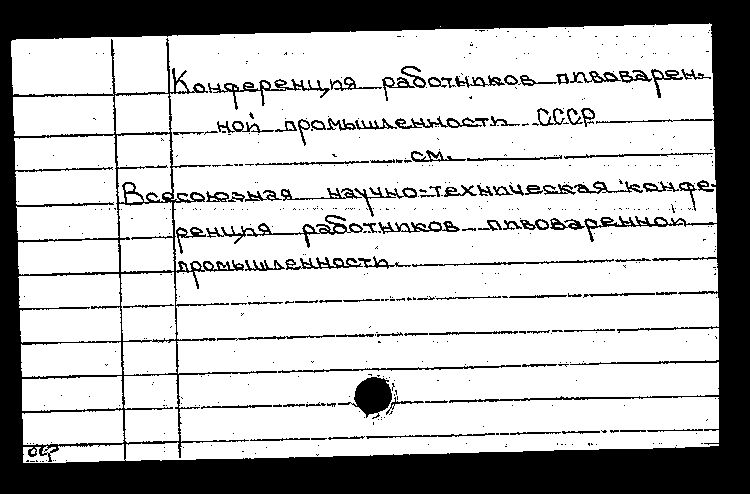 Конференция работников пивоварен-
ной промышленность СССР
см.
Всесоюзная научно-техническая конфе-
ренция работников пивоваренной
промышленность.